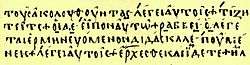 ΤΟΥϹΑΚΟΛΟΥΘΟΥΝΤΑϹΛΕΓΕΙΑΥΤΟΙϹΤΙΖΗ
ΤΕΙΤΕΟΙΔΕΕΙΠΟΝΑΥΤΩΡΑΒΒΕΙΟΛΕΓΕ
ΤΑΙΕΡΜΗΝΕΥΟΜΕΝΟΝΔΙΔΑϹΚΑΛΕΠΟΥΜΕ
ΝΕΙϹΛΕΓΕΙΑΥΤΟΙϹΕΡΧΕϹΘΕΚΑΙΙΔΕΤΕΗΛ